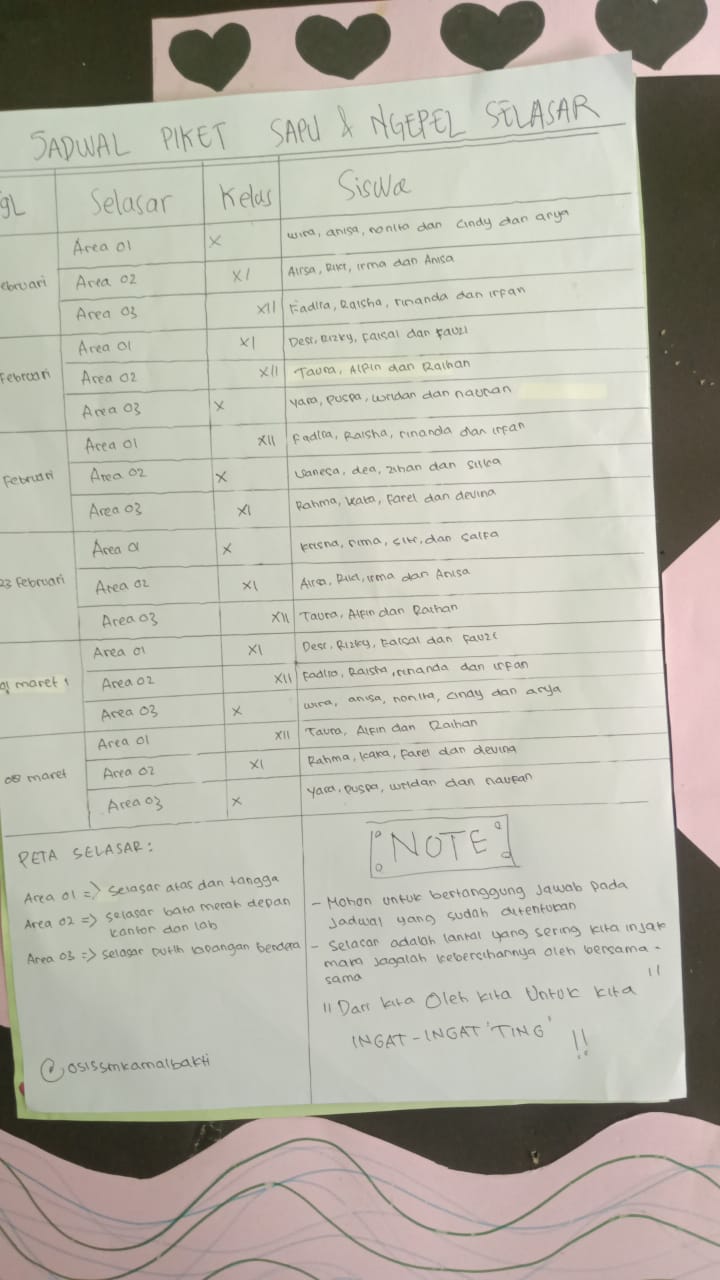 JADWAL PIKET SAPU & NGEPEL SELASAR
gL Selasar Kelas Siswa
ebruari
Area 01 X wira, anisa, nonita dan cindy dan arya
Area 02 XI Airsa, Riki, irma dan Anisa
Area 03 XII Fadlia, Raisha, rinanda dan irfan
Februari
Area 01 XI Desi, Rizky, Faisal dan Fauzi
Area 02 XII Taura, Alfin dan Raihan
Area 03 X Yara, puspa, wildan dan naufan
Februari
Area 01 XII Fadlia, Raisha, rinanda dan irfan
Area 02 X vanesa, dea, zihan dan silka
Area 03 XI Rahma, kaka, Farel dan devina
23 Februari
Area 01 X krisna, rima, siti, dan salfa
Area 02 XI Airsa, Riki, irma dan Anisa
Area 03 XII Taura, Alfin dan Raihan
01 maret
Area 01 XI Desi, Rizky, Faisal dan Fauzi
Area 02 XII Fadlia, Raisha, rinanda dan irfan
Area 03 X wira, anisa, nonita, cindy dan arya
08 maret
Area 01 XII Taura, Alfin dan Raihan
Area 02 XI Rahma, kaka, Farel dan devina
Area 03 X Yara, puspa, wildan dan naufan
PETA SELASAR:
Area 01 => selasar atas dan tangga
Area 02 => selasar bata merah depan
kantor dan lab
Area 03 => selasar putih lapangan bendera
@osissmkamalbakti
NOTE
- Mohon untuk bertanggung jawab pada
jadwal yang sudah ditentukan
- Selasar adalah lantai yang sering kita injak
maka jagalah kebersihannya oleh bersama-
sama
" Dari kita Oleh kita Untuk kita "
INGAT-INGAT 'TING' !!